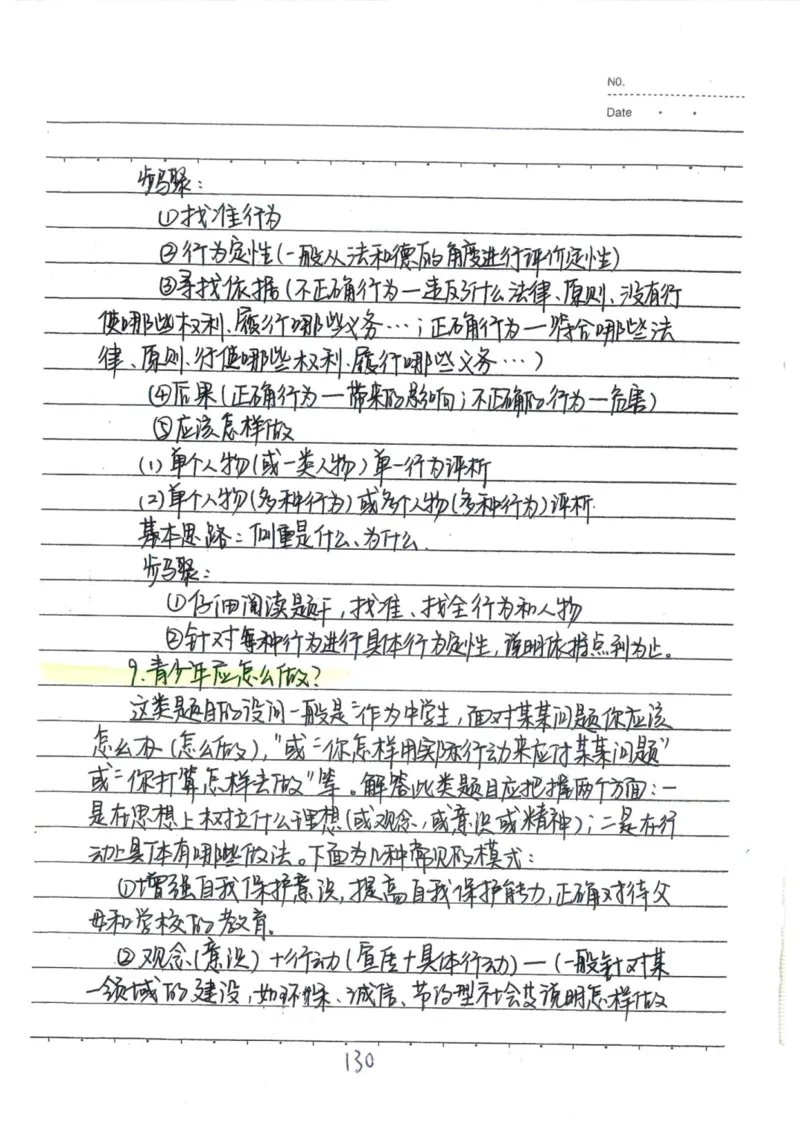 NO.
Date
步骤:
①找准行为
②行为定性(一般从法和德的角度进行评价定性)
③寻找依据(不正确行为一违反什么法律、原则、没有行
使哪些权利、履行哪些义务…;正确行为一符合哪些法
律、原则、行使哪些权利、履行哪些义务…)
④后果(正确行为一带来的影响;不正确的行为一危害)
⑤应该怎样做
(1)单个人物(或一类人物)单一行为评析
(2)单个人物(多种行为)或多个人物(多种行为)评析.
基本思路:侧重是什么、为什么.
步骤:
①仔细阅读题干,找准、找全行为和人物
②针对每种行为进行具体行为定性,说明依据点到为止。
9.青少年应怎么做?
这类题目的设问一般是“作为中学生,面对某某问题你应该
怎么办(怎么做),”或“你怎样用实际行动来应对某某问题”
或“你打算怎样去做”等。解答此类题目应把握两个方面:一
是在思想上树立什么理想(或观念,或意识或精神);二是在行
动上具体有哪些做法。下面为几种常见的模式:
①增强自我保护意识,提高自我保护能力,正确对待父
母和学校的教育.
②观念(意识)+行动(宣传+具体行动)—(一般针对某
一领域的建设,如环保、诚信、节约型社会要说明怎样做
130